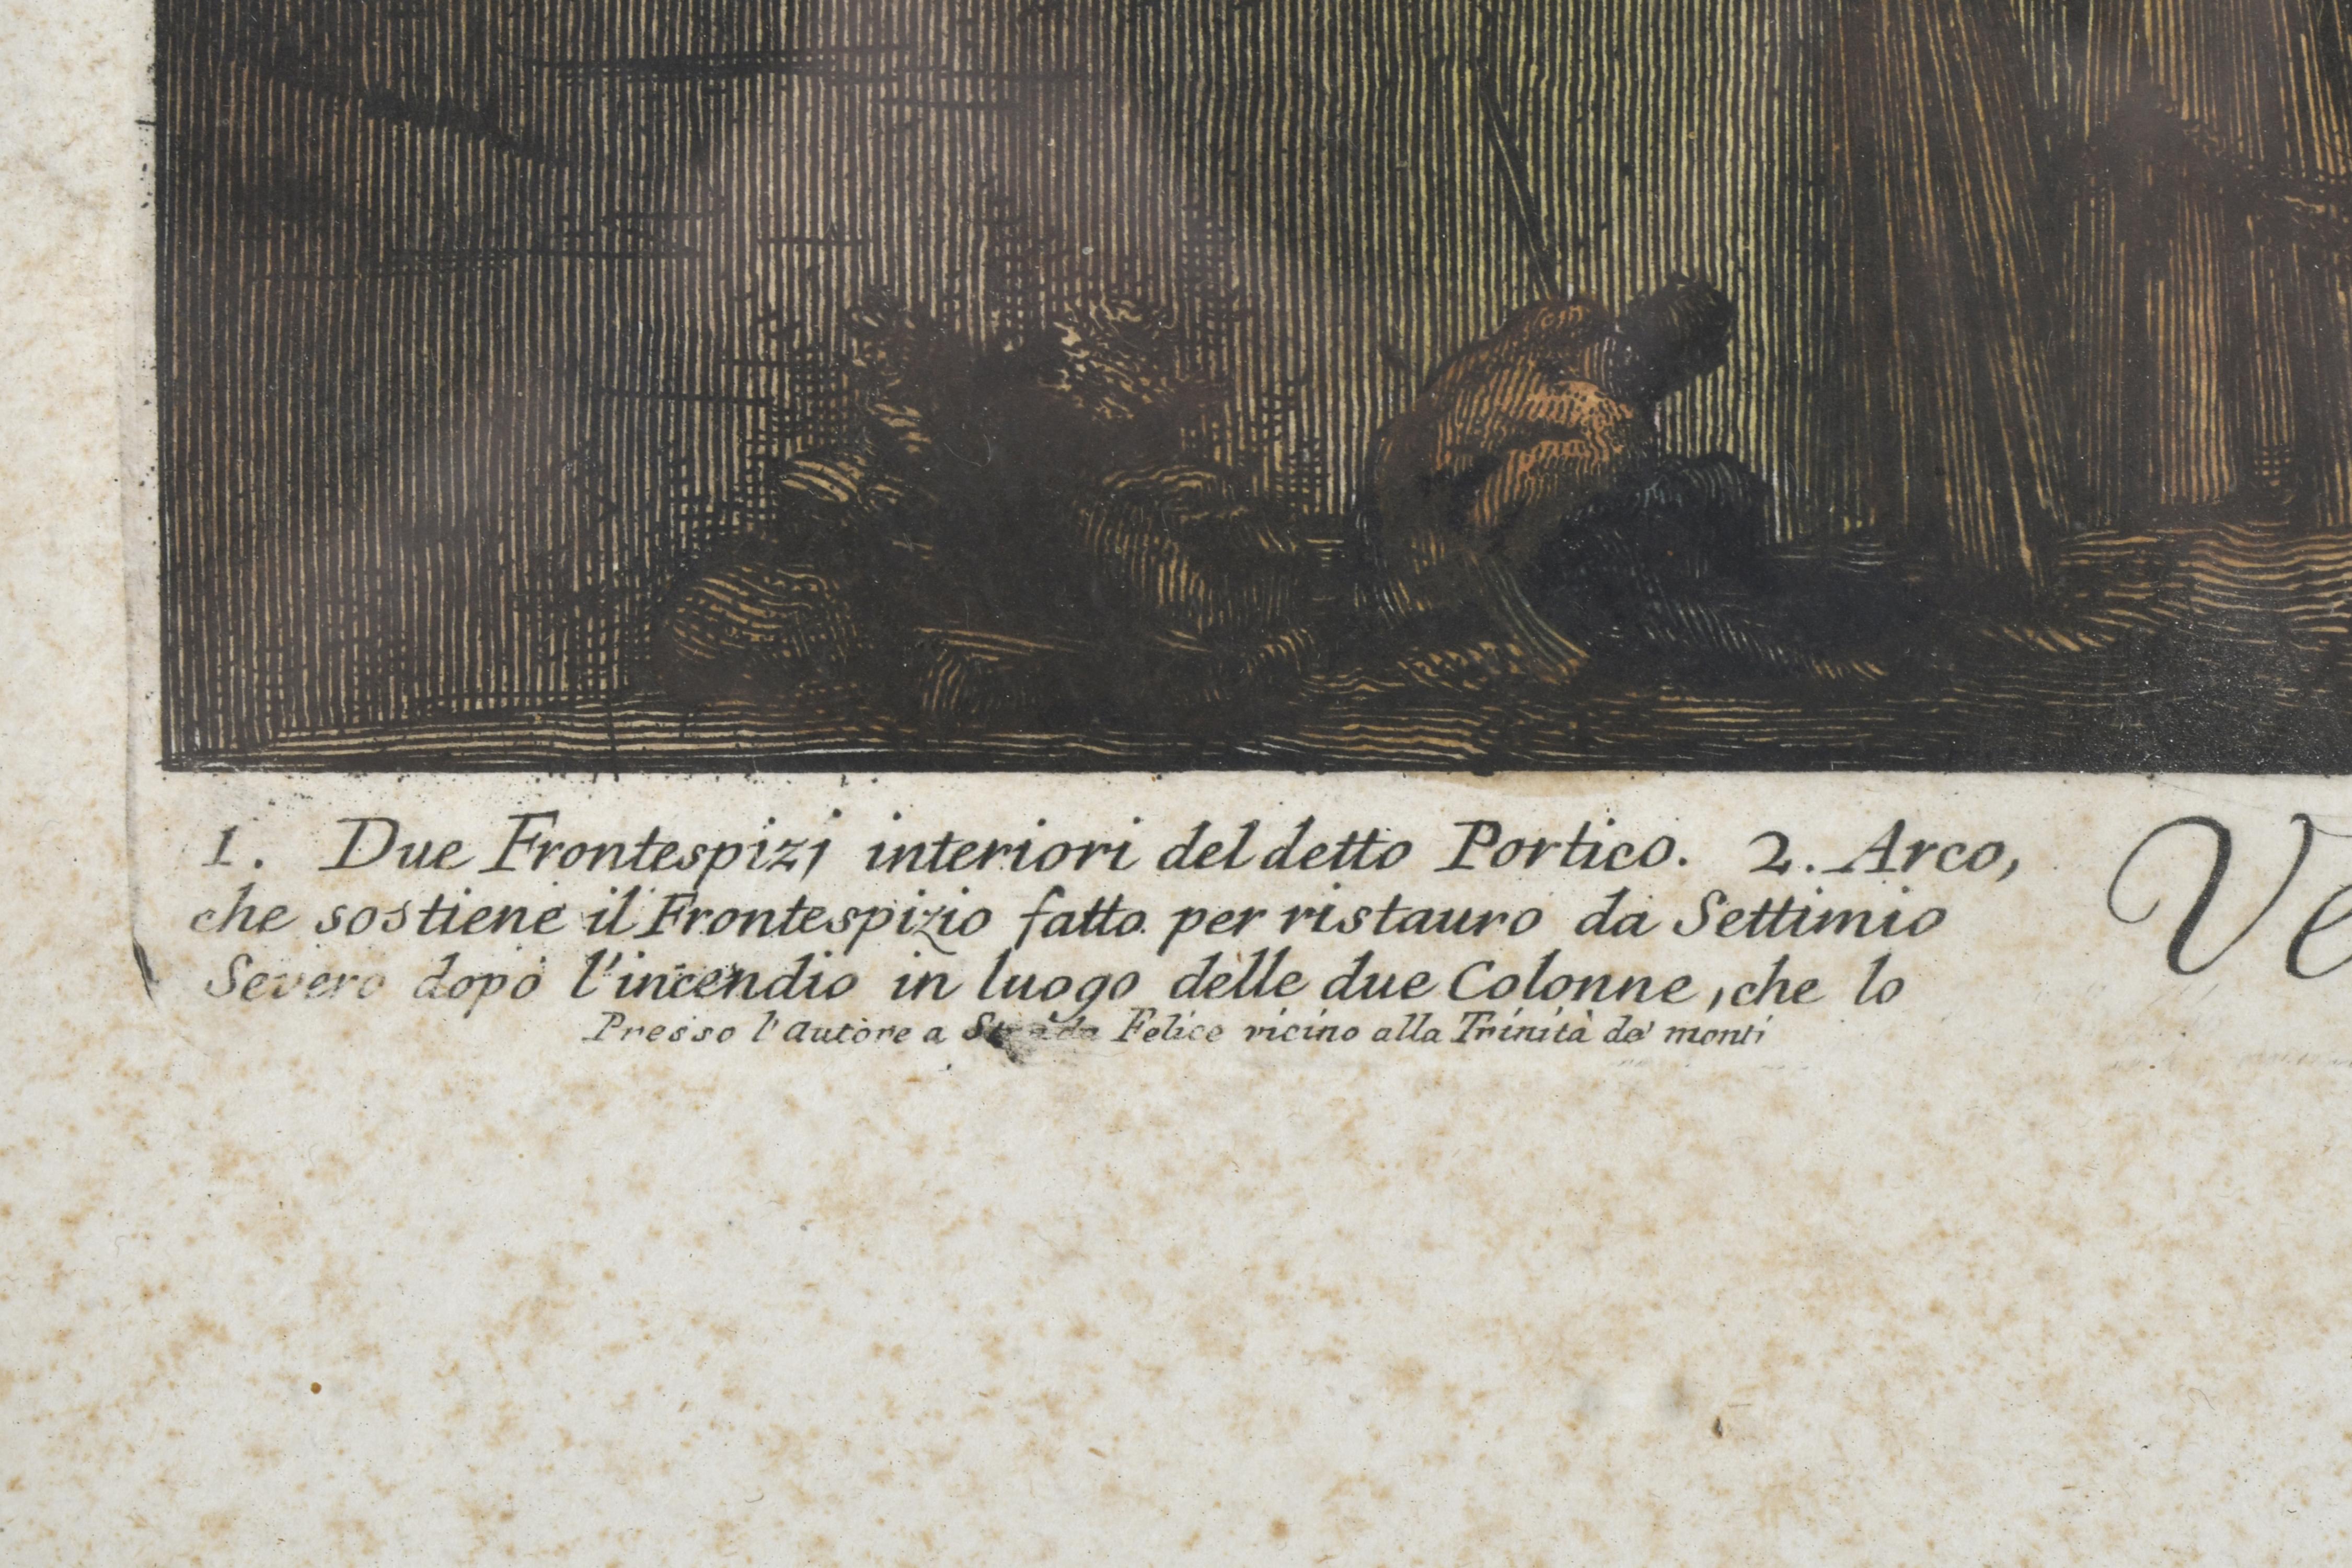 1. Due Frontespizj interiori del detto Portico. 2. Arco,
che sostiene il Frontespizio fatto per ristauro da Settimio
Severo dopo l'incendio in luogo delle due Colonne, che lo
Presso l'autore a Strada Felice vicino alla Trinità de' monti
Ve